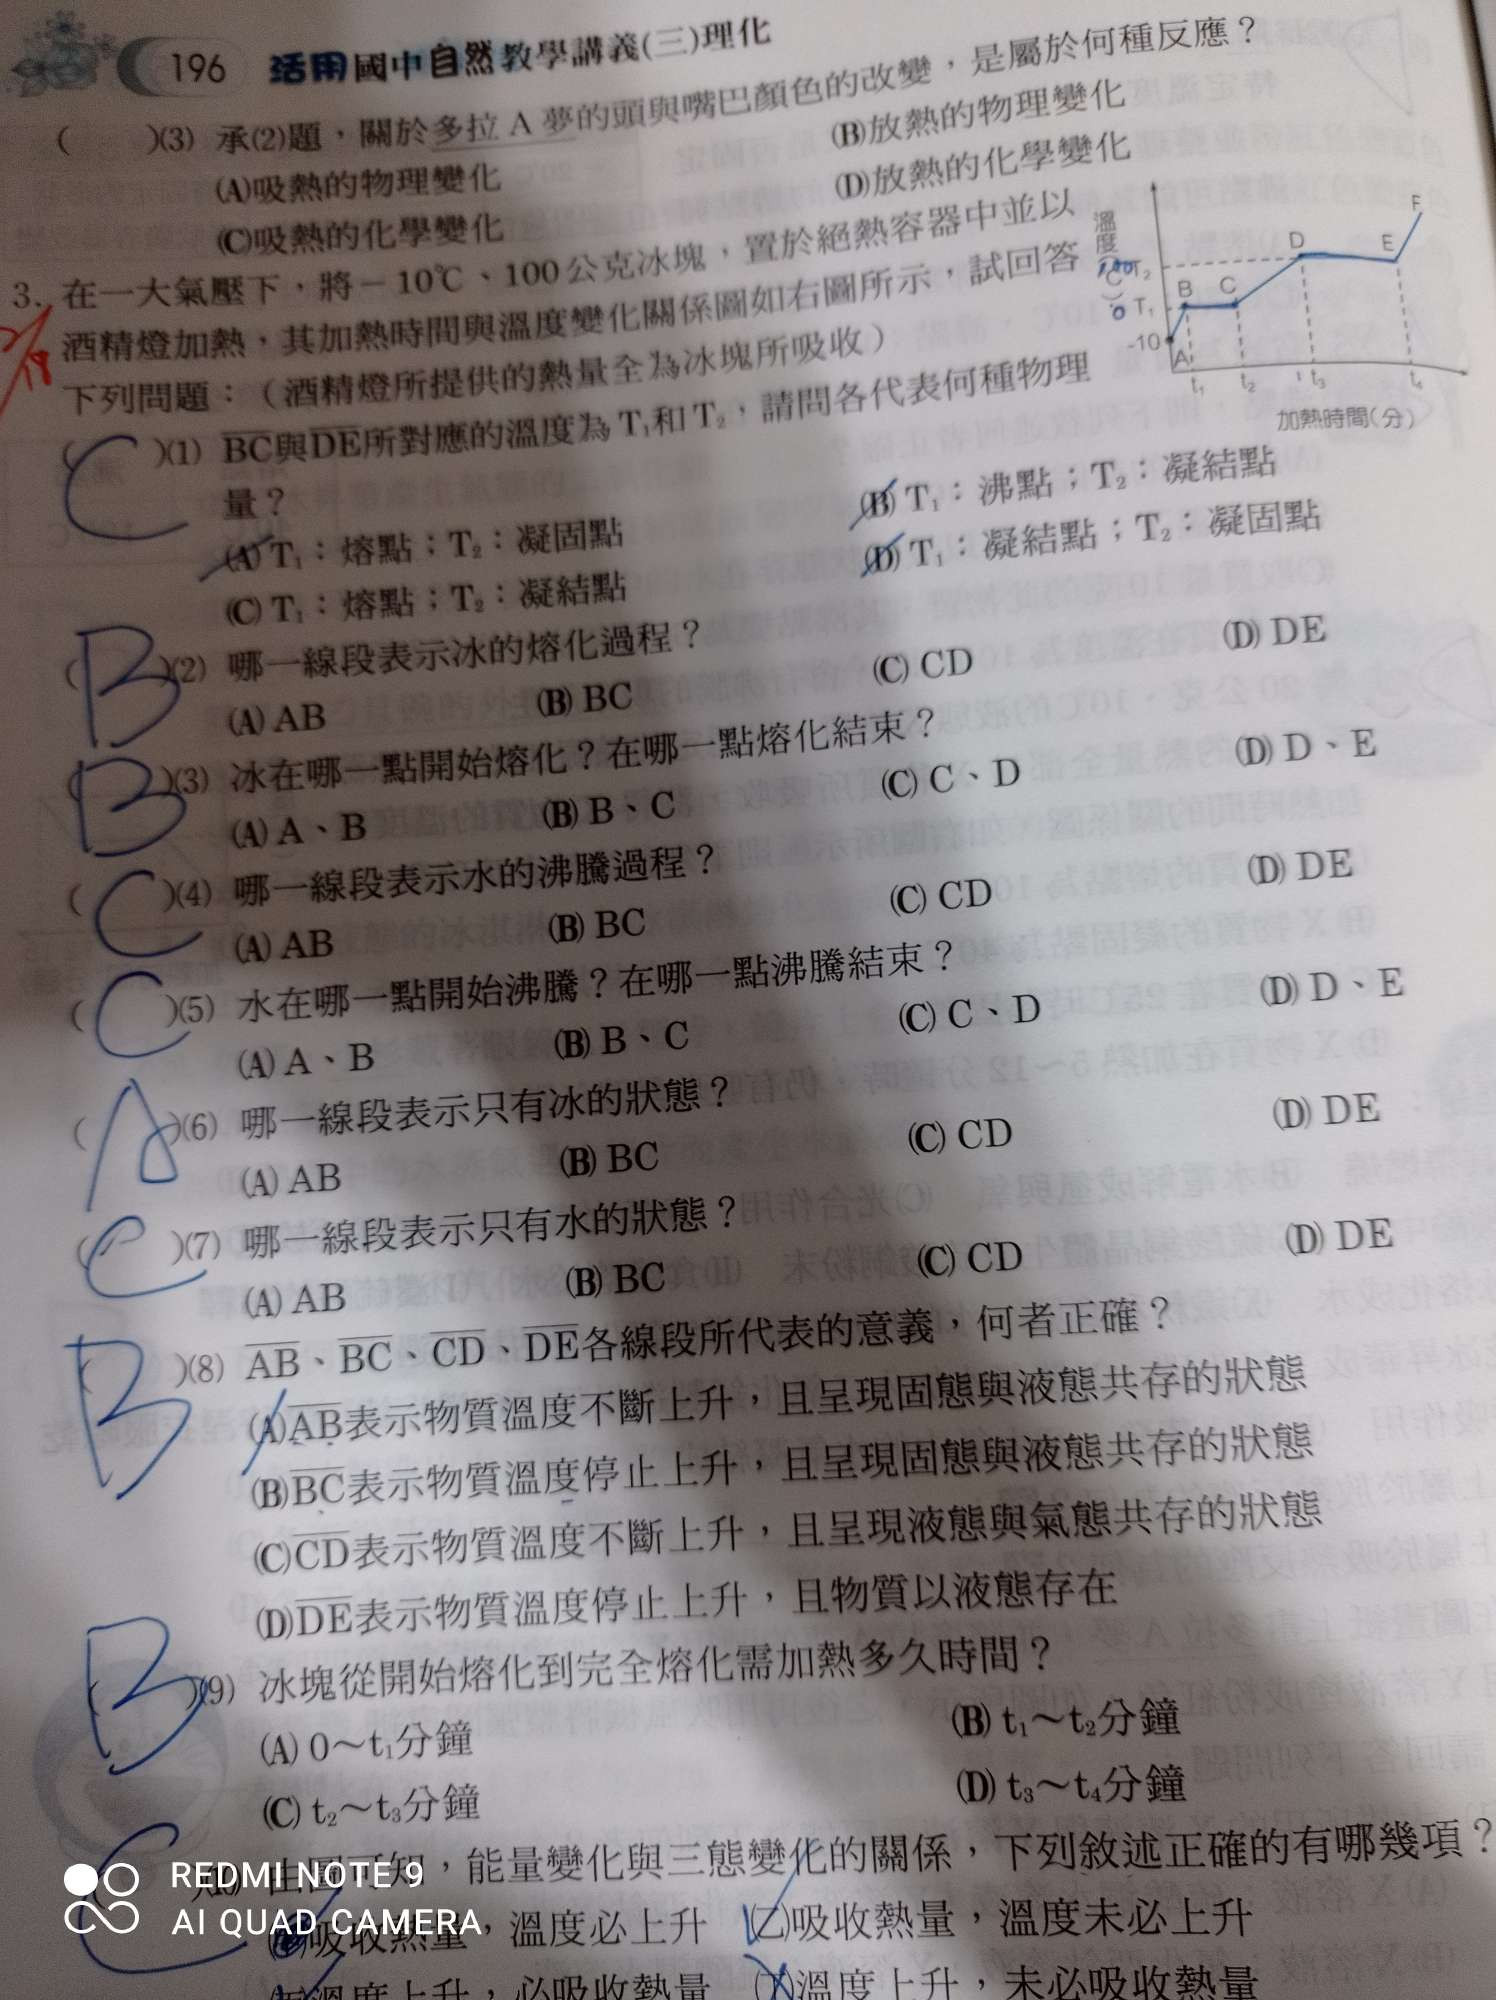 196 活用國中自然教學講義(三)理化
( )(3) 承(2)題，關於多拉A夢的頭與嘴巴顏色的改變，是屬於何種反應？
(A)吸熱的物理變化 (B)放熱的物理變化
(C)吸熱的化學變化 (D)放熱的化學變化
3. 在一大氣壓下，將－10℃、100公克冰塊，置於絕熱容器中並以
酒精燈加熱，其加熱時間與溫度變化關係圖如右圖所示，試回答
下列問題：（酒精燈所提供的熱量全為冰塊所吸收）
溫度(℃)
100 T₂
0 T₁
-10
A B C D E F
t₁ t₂ t₃ t₄
加熱時間(分)
(C)(1) BC與DE所對應的溫度為T₁和T₂，請問各代表何種物理
量？
(A) T₁：熔點；T₂：凝固點 (B) T₁：沸點；T₂：凝結點
(C) T₁：熔點；T₂：凝結點 (D) T₁：凝結點；T₂：凝固點
(B)(2) 哪一線段表示冰的熔化過程？
(A) AB (B) BC (C) CD (D) DE
(B)(3) 冰在哪一點開始熔化？在哪一點熔化結束？
(A) A、B (B) B、C (C) C、D (D) D、E
(C)(4) 哪一線段表示水的沸騰過程？
(A) AB (B) BC (C) CD (D) DE
(C)(5) 水在哪一點開始沸騰？在哪一點沸騰結束？
(A) A、B (B) B、C (C) C、D (D) D、E
(A)(6) 哪一線段表示只有冰的狀態？
(A) AB (B) BC (C) CD (D) DE
(C)(7) 哪一線段表示只有水的狀態？
(A) AB (B) BC (C) CD (D) DE
(B)(8) AB、BC、CD、DE各線段所代表的意義，何者正確？
(A)AB表示物質溫度不斷上升，且呈現固態與液態共存的狀態
(B)BC表示物質溫度停止上升，且呈現固態與液態共存的狀態
(C)CD表示物質溫度不斷上升，且呈現液態與氣態共存的狀態
(D)DE表示物質溫度停止上升，且物質以液態存在
(B)(9) 冰塊從開始熔化到完全熔化需加熱多久時間？
(A) 0～t₁分鐘 (B) t₁～t₂分鐘
(C) t₂～t₃分鐘 (D) t₃～t₄分鐘
(C)(10) 由圖可知，能量變化與三態變化的關係，下列敘述正確的有哪幾項？
吸收熱量，溫度必上升 (乙)吸收熱量，溫度未必上升
(丙)溫度上升，必吸收熱量 (丁)溫度上升，未必吸收熱量
REDMI NOTE 9
AI QUAD CAMERA